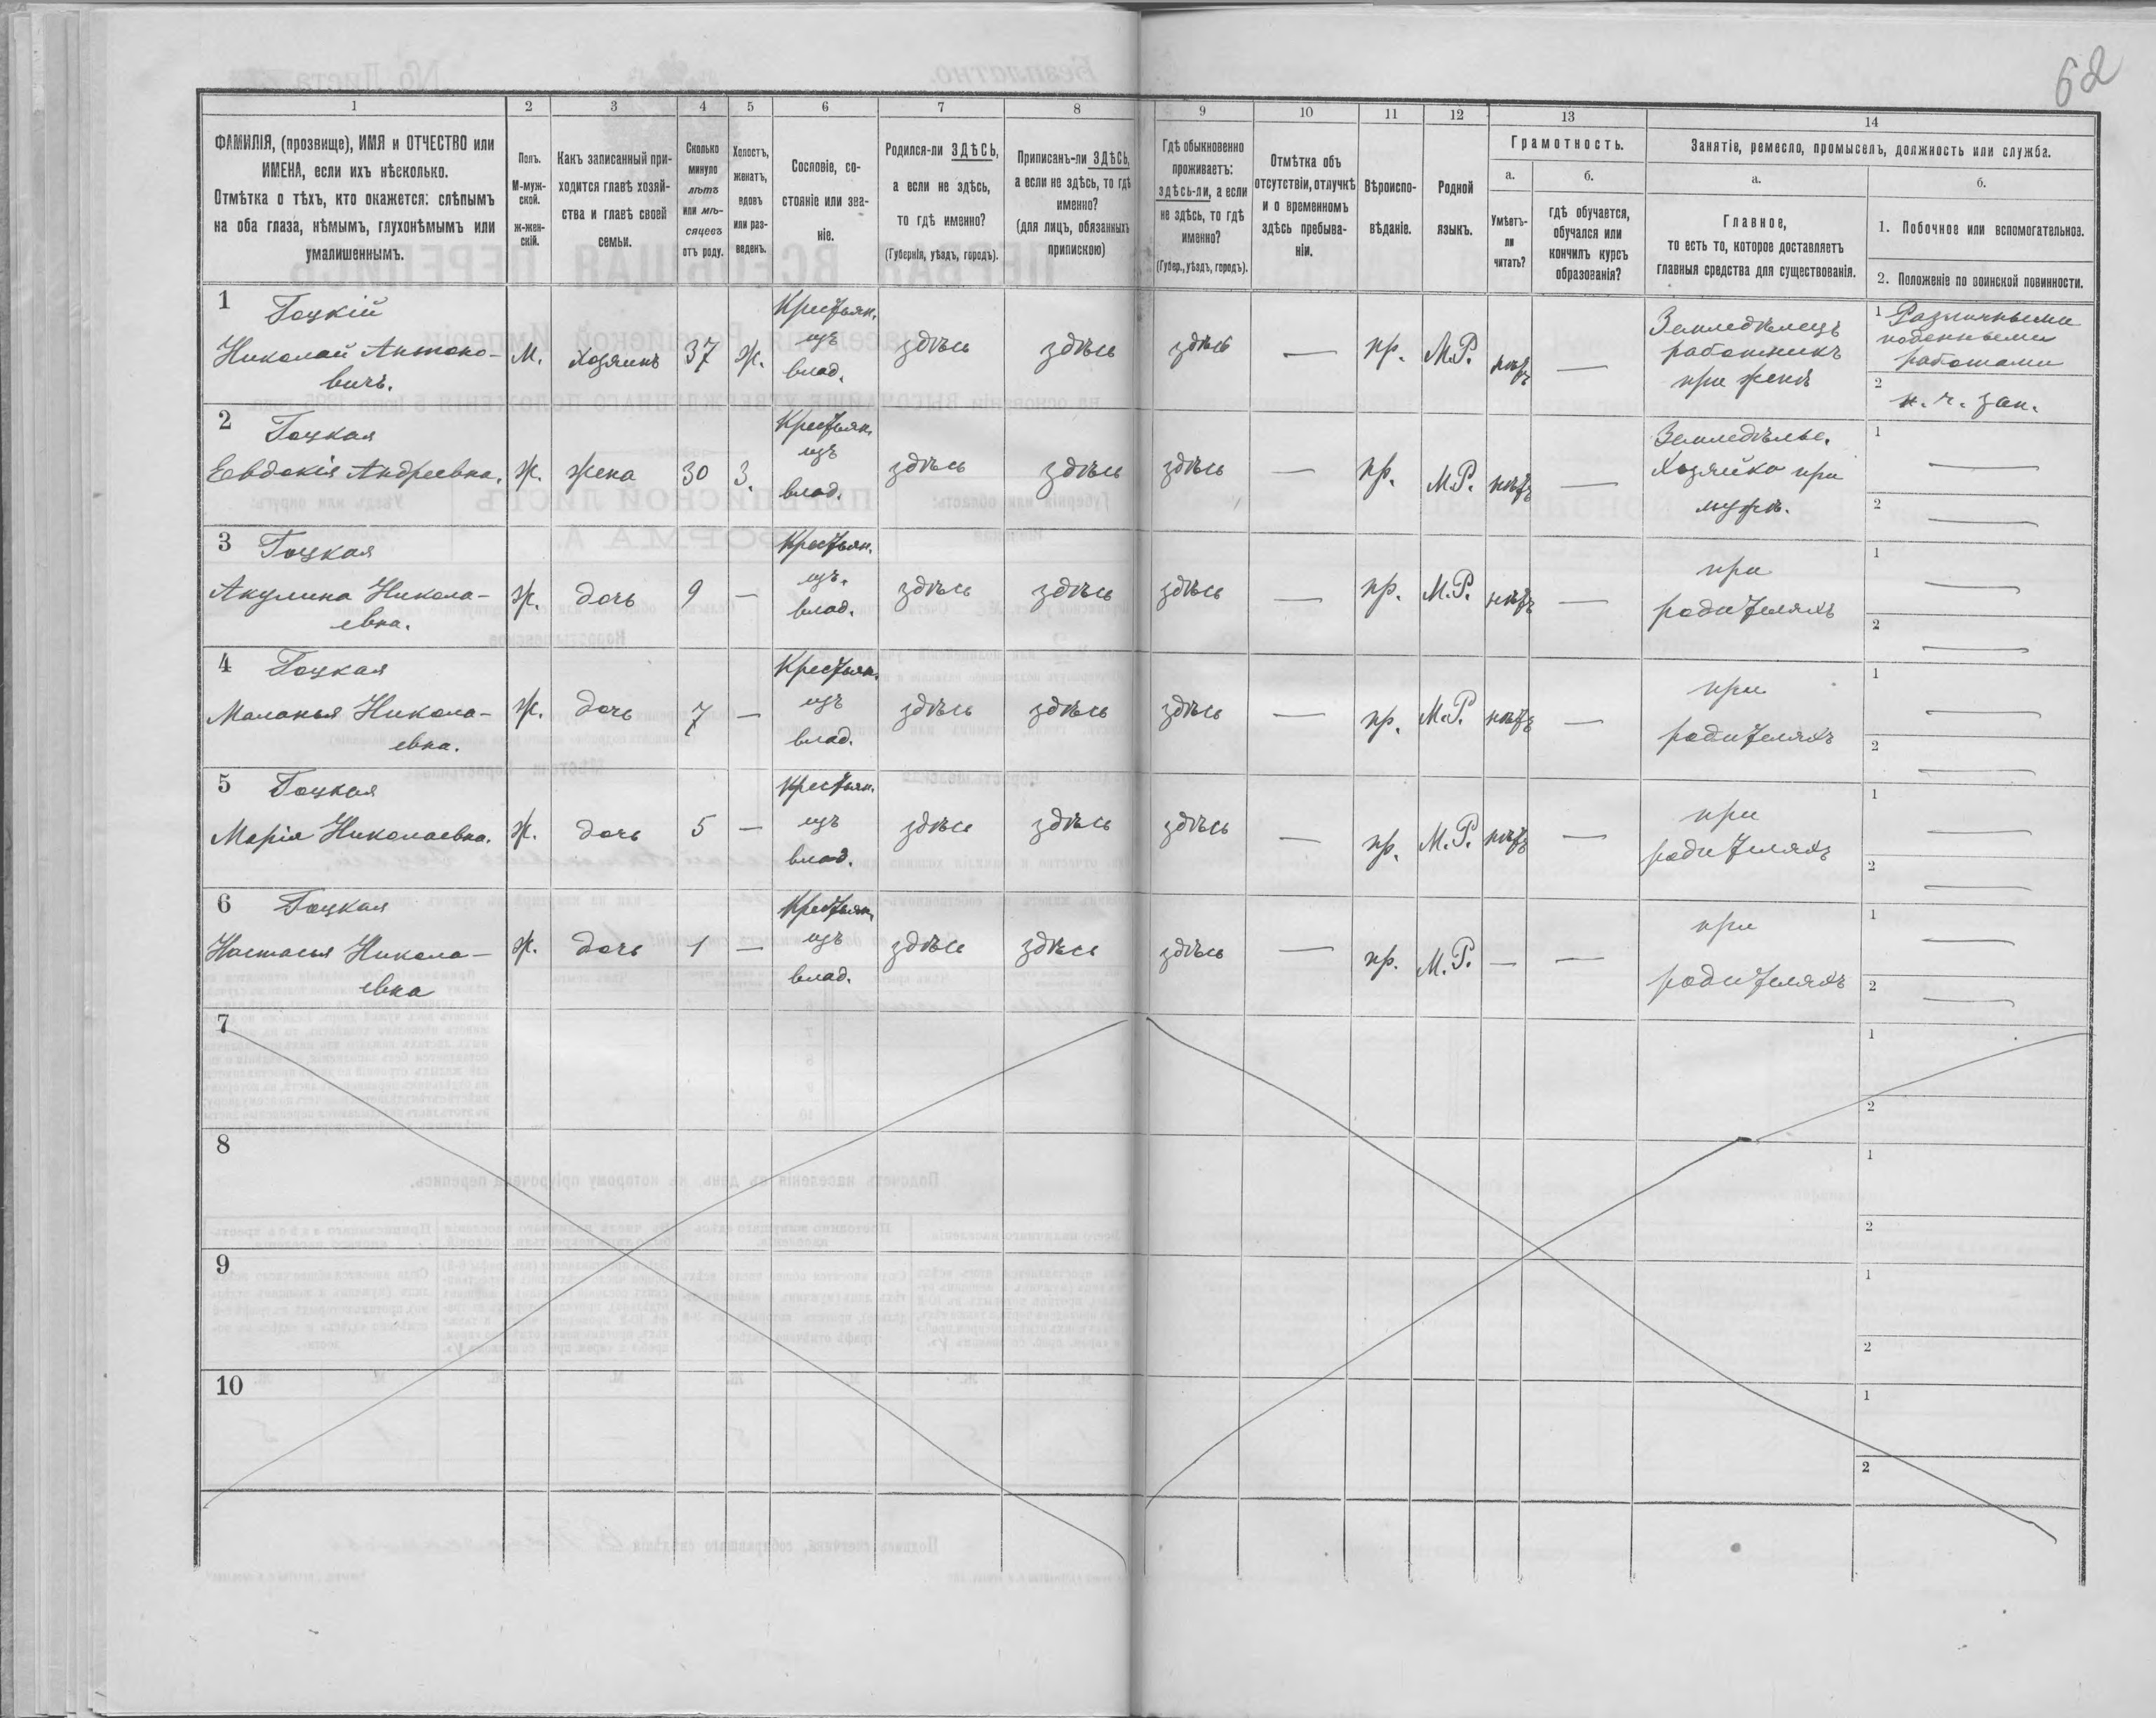 62
1 2 3 4 5 6 7 8 9 10 11 12 13 14
ФАМИЛІЯ, (прозвище), ИМЯ и ОТЧЕСТВО или
ИМЕНА, если ихъ нѣсколько.
Отмѣтка о тѣхъ, кто окажется: слѣпымъ
на оба глаза, нѣмымъ, глухонѣмымъ или
умалишеннымъ.
Полъ.
М-муж-
ской.
ж-жен-
скій.
Какъ записанный при-
ходится главѣ хозяй-
ства и главѣ своей
семьи.
Сколько
минуло
лѣтъ
или мѣ-
сяцевъ
отъ роду.
Холостъ,
женатъ,
вдовъ
или раз-
веденъ.
Сословіе, со-
стояніе или зва-
ніе.
Родился-ли ЗДѢСЬ,
а если не здѣсь,
то гдѣ именно?
(Губернія, уѣздъ, городъ).
Приписанъ-ли ЗДѢСЬ,
а если не здѣсь, то гдѣ
именно?
(для лицъ, обязанныхъ
припискою)
Гдѣ обыкновенно
проживаетъ:
здѣсь-ли, а если
не здѣсь, то гдѣ
именно?
(Губер., уѣздъ, городъ).
Отмѣтка объ
отсутствіи, отлучкѣ
и о временномъ
здѣсь пребыва-
ніи.
Вѣроиспо-
вѣданіе.
Родной
языкъ.
Грамотность.
а.
Умѣетъ-
ли
читать?
б.
гдѣ обучается,
обучался или
кончилъ курсъ
образованія?
Занятіе, ремесло, промыселъ, должность или служба.
а.
Главное,
то есть то, которое доставляетъ
главныя средства для существованія.
б.
1. Побочное или вспомогательное.
2. Положеніе по воинской повинности.
1 Гоцкій
Николай Антоно-
вичъ.
М.
хозяинъ
37
ж.
Крестьян.
изъ
влад.
здѣсь
здѣсь
здѣсь
—
пр.
М.Р.
нѣтъ
—
Земледѣлецъ
работникъ
при женѣ
1 Различными
поденными
работами
2 н. ч. зап.
2 Гоцкая
Евдокія Андреевна.
ж.
жена
30
з.
Крестьян.
изъ
влад.
здѣсь
здѣсь
здѣсь
—
пр.
М.Р.
нѣтъ
—
Земледѣлье.
Хозяйка при
мужѣ.
1 —
2 —
3 Гоцкая
Акулина Никола-
евна.
ж.
дочь
9
—
Крестьян.
изъ.
влад.
здѣсь
здѣсь
здѣсь
—
пр.
М.Р.
нѣтъ
—
при
родителяхъ
1 —
2 —
4 Гоцкая
Маланья Никола-
евна.
ж.
дочь
7
—
Крестьян.
изъ
влад.
здѣсь
здѣсь
здѣсь
—
пр.
М.Р.
нѣтъ
—
при
родителяхъ
1 —
2 —
5 Гоцкая
Марія Николаевна.
ж.
дочь
5
—
Крестьян.
изъ
влад.
здѣсь
здѣсь
здѣсь
—
пр.
М.Р.
нѣтъ
—
при
родителяхъ
1 —
2 —
6 Гоцкая
Настасья Никола-
евна
ж.
дочь
1
—
Крестьян.
изъ
влад.
здѣсь
здѣсь
здѣсь
—
пр.
М.Р.
—
—
при
родителяхъ
1 —
2 —
7
1
2
8
1
2
9
1
2
10
1
2